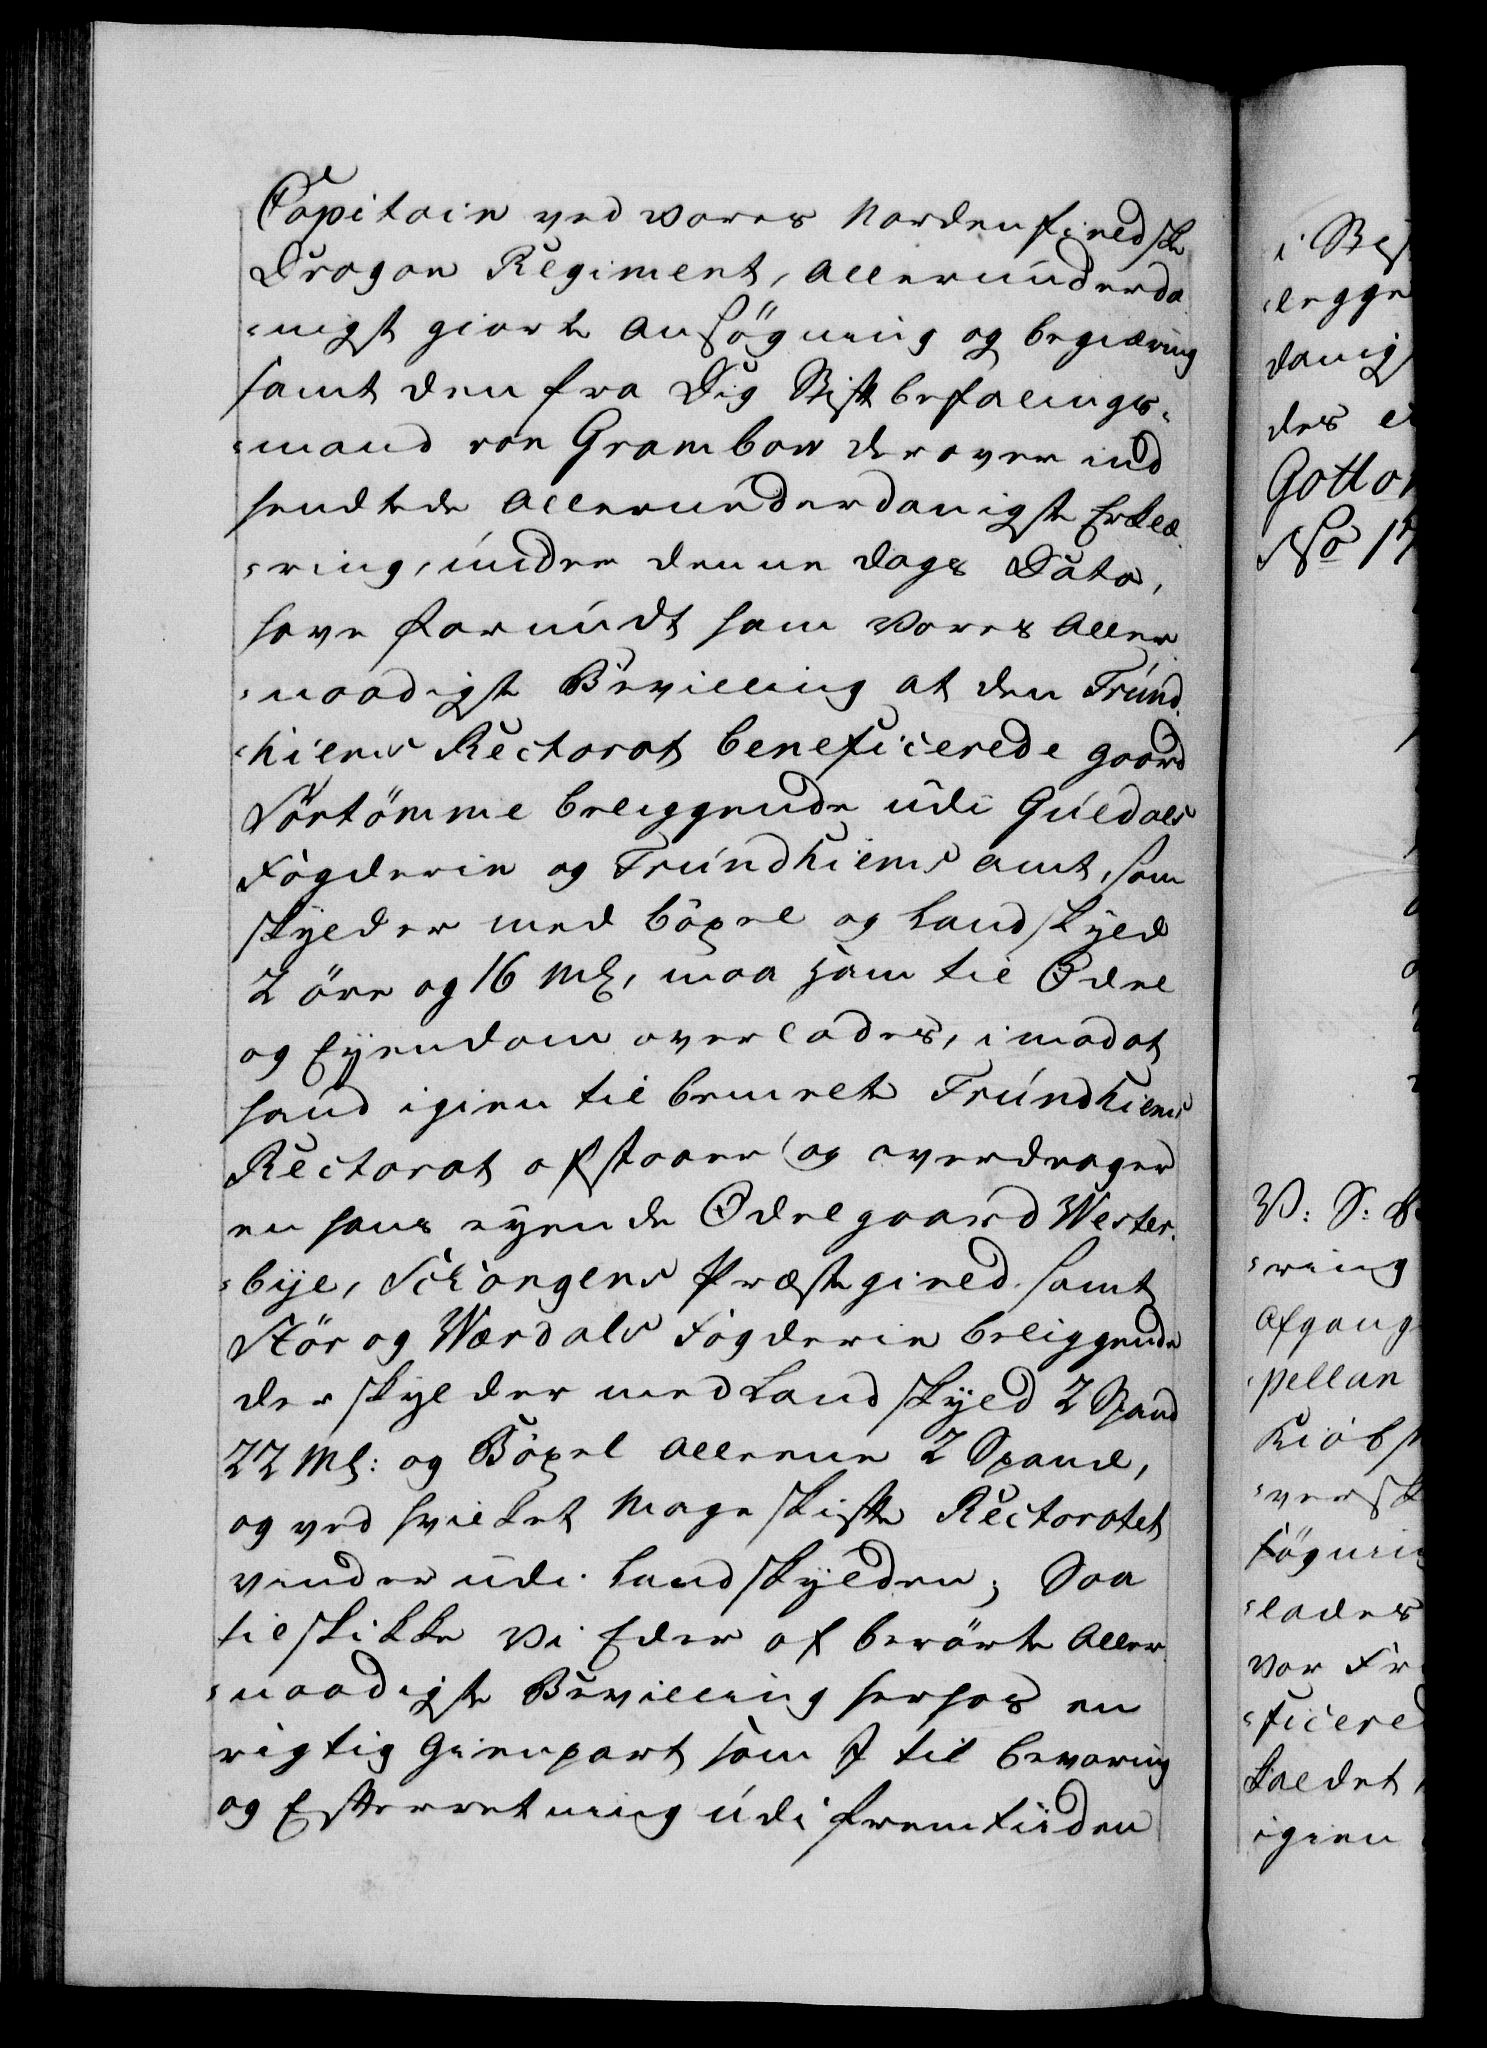 Capitain ved vores Nordenfieldske
Dragon Regiment, allerunderda
-nigst giorte Ansøgning og begiæring
samt den fra Dig Stiftbefalings-
-mand von Grambow derover ind
sendtede allerunderdanigste Erklæ-
-ring, under denne dags Dato,
have forundt ham Vores Aller
-naadigste Bevilling at den Trund
-hiems Rectorat beneficerede gaard
Sörtömme beliggende udi Guldals
Fogderie og Trundhiems amt, som
skylder med böxel og Landskyld
2 öre og 16 Ml, maa ham til Odel
og Eyendom overlades, imod at
hand igien til bemelte Trundhiems
Rectorat afstaaer og overdrager
en hans eyende Odelgaard Wester-
-bye, Schongens Præstegield samt
Stör og Wærdals Fogderie beliggende
der skylder med Landskyld 2 Spand
22 Ml: og Böxel alleene 2 Spand,
og ved hvilket Mageskifte Rectoratet
vinder udi Landskylden; Saa
tilskikke Vi Eder af berörte Aller
-naadigste Bevilling herhos en
rigtig Gienpart som I til bevaring
og Efterretning udi fremtiiden
i
legge
danig
des
Gotto
No 17
V: S:
-ring
Afgang
pellan
Kiöbst
-versk
sögning
-lades
vor Fr
-ficered
kaldet
igien